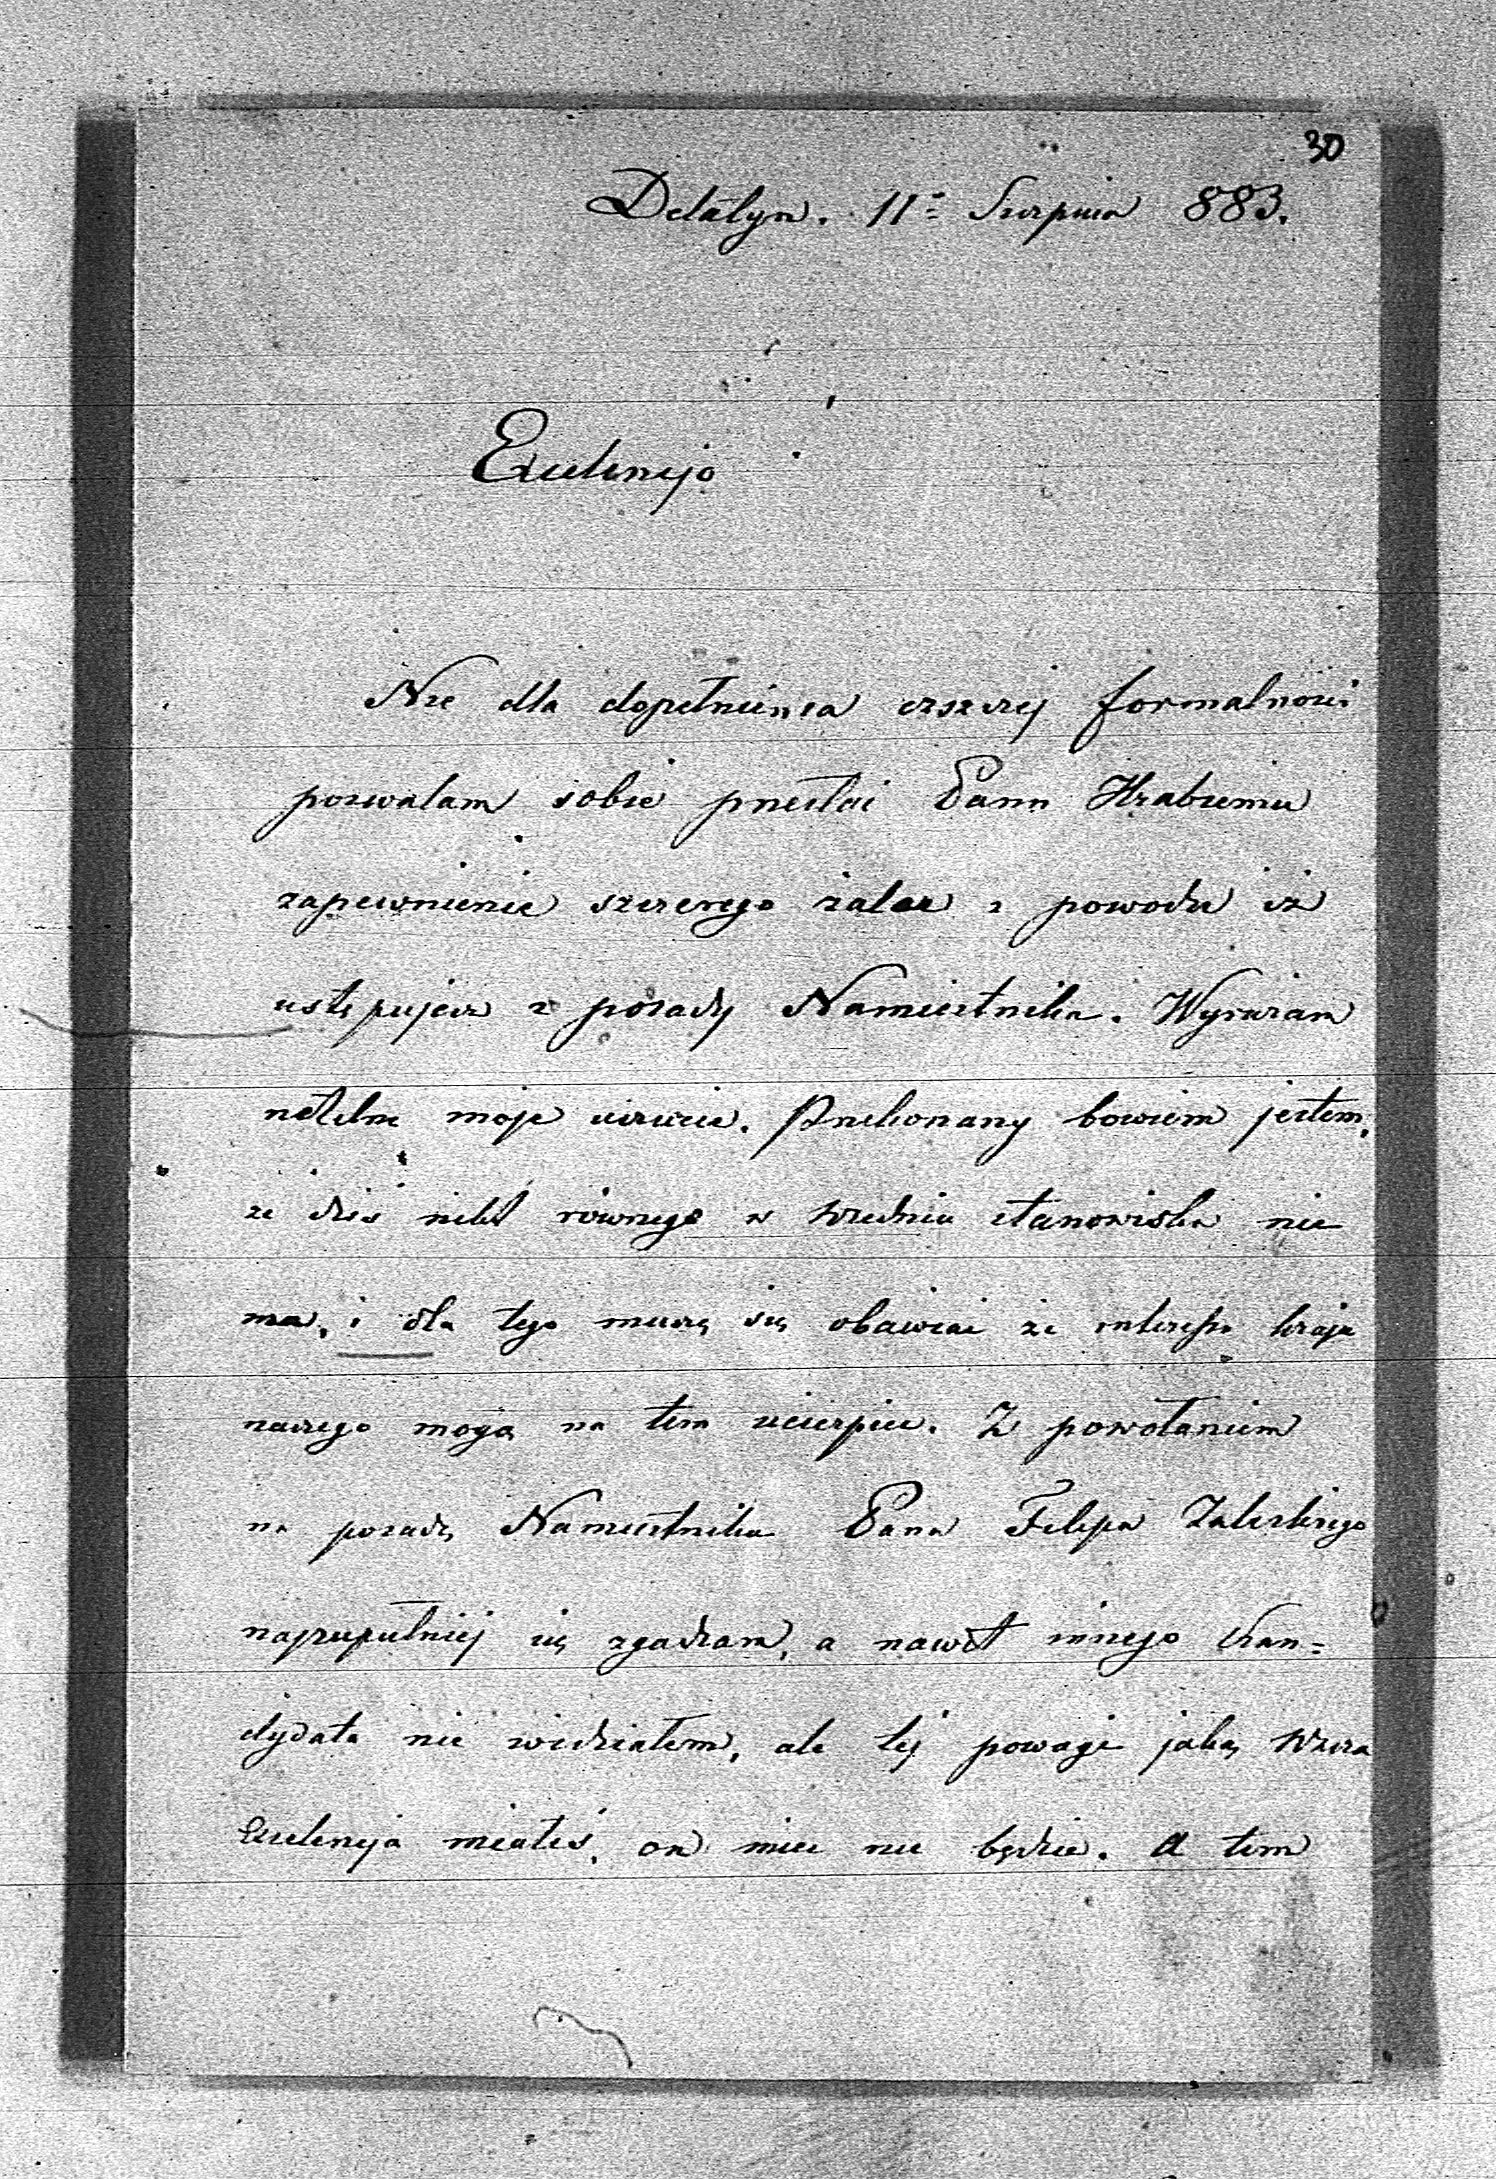 30
Delatyn. 11. Sierpnia 883.
Excelencyo
Nie dla dopełnienia czszej formalności
pozwalam sobie przesłać Panu Hrabiemu
zapewnienie szczerego żalu z powodu iż
ustępujesz z posady Namiestnika. Wyrażam
moje uczucie. Przekonany bowiem jestem,
że dziś nikt równego w Wiedniu stanowiska nie
ma, i dla tego muszę się obawiać że interesa kraju
naszego mogą na tem ucierpieć. Z powołaniem
na posadę Namiestnika Pana Filipa Zaleskiego
najzupełniej się zgadzam, a nawet innego kan=
dydata nie widziałem, ale tej powagi jaką Wasza
Excelencyja miałeś, on mieć nie będzie. A tem